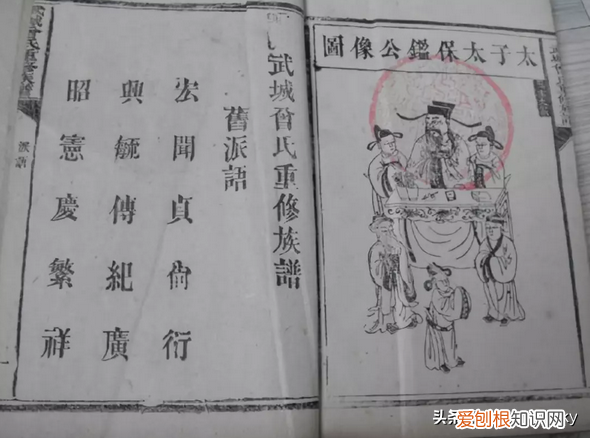 太子太保鑑公像圖
武城曾氏重修族譜
舊派語
宏聞貞尚衍
興毓傳紀廣
昭憲慶繁祥
派語
头条
爱刨根知识网